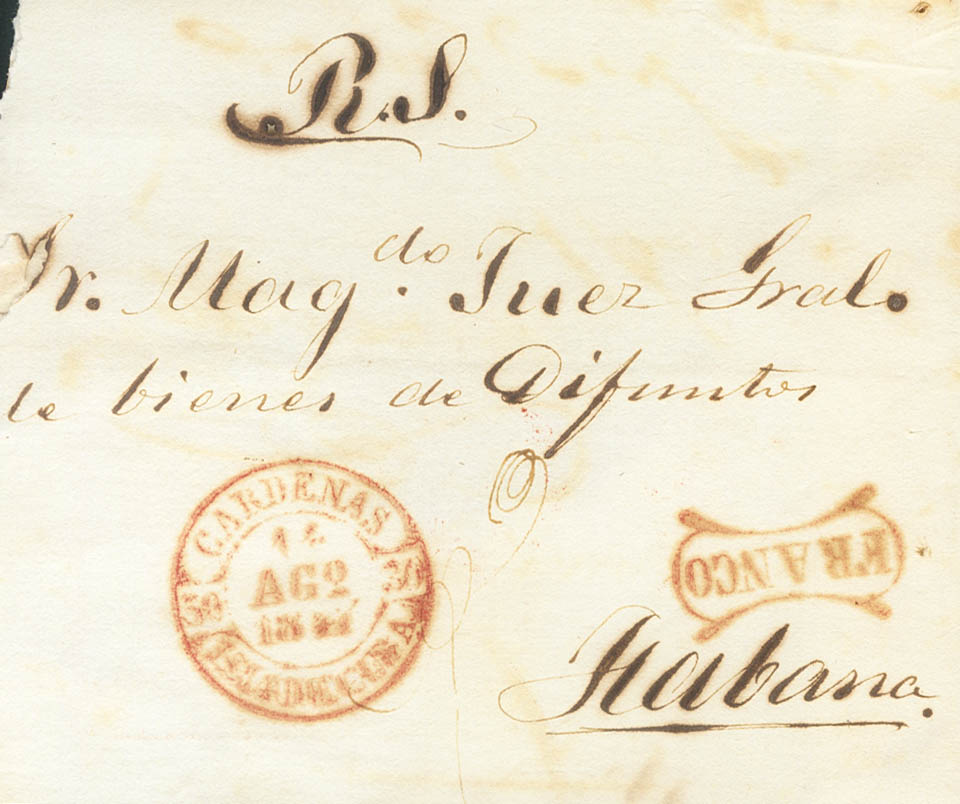 R.S.
Sr. Mag.do Juez Gral.
de bienes de Difuntos
CARDENAS
14
AG2
ISLA DE CUBA
FRANCO
Habana.